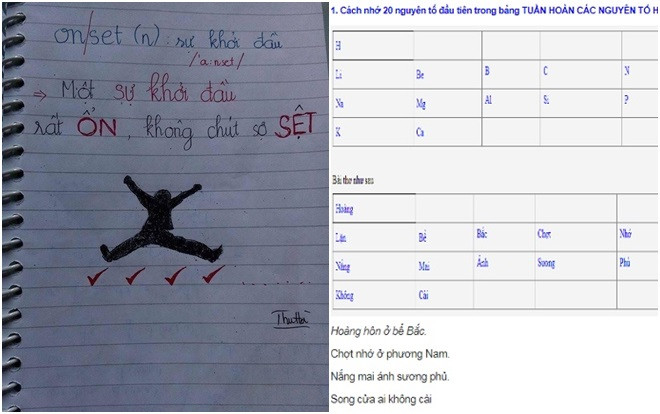 on/set (n): sự khởi đầu
/'a:nset/
⇒ Một sự khởi đầu
rất ỔN, không chút sợ SỆT
ThuHà
1. Cách nhớ 20 nguyên tố đầu tiên trong bảng TUẦN HOÀN CÁC NGUYÊN TỐ H
H
Li Be B C N
Na Mg Al Si P
K Ca
Bài thơ như sau
Hoàng
Lân Bể Bắc Chợt Nhớ
Nắng Mai Ánh Sương Phủ
Không Cài
Hoàng hôn ở bể Bắc.
Chợt nhớ ở phương Nam.
Nắng mai ánh sương phủ.
Song cửa ai không cài